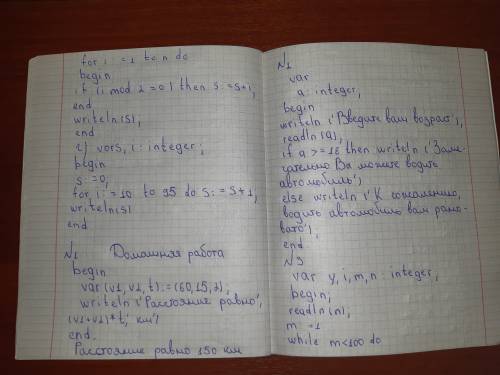 for i := 1 to n do
begin
if (i mod 2 = 0) then s := s+i;
end
writeln(s);
end
2) var s, i : integer;
begin
s := 0;
for i := 10 to 95 do s := s + 1;
writeln(s)
end
№1 Домашняя работа
begin
var (v1, v2, t) := (60, 15, 2);
writeln ('Расстояние равно',
(v1+v2)*t, 'км')
end.
Расстояние равно 150 км
№1
var
a : integer;
begin
writeln ('Введите вам возраст');
readln (a);
if a >= 18 then writeln ('Заме-
чательно Вы можете водить
автомобиль')
else writeln ('К сожалению,
водить автомобиль вам рано-
вато');
end
№3
var y, i, m, n : integer;
begin;
readln (n);
m = 1
while m<100 do